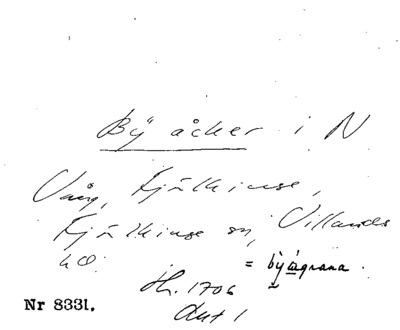 Bÿ åcker i N
Vång, Fjälkinge,
Fjälkinge sn, Villands
hd.
= byagrana.
Hr. 1706
Akt 1
Nr 8331.